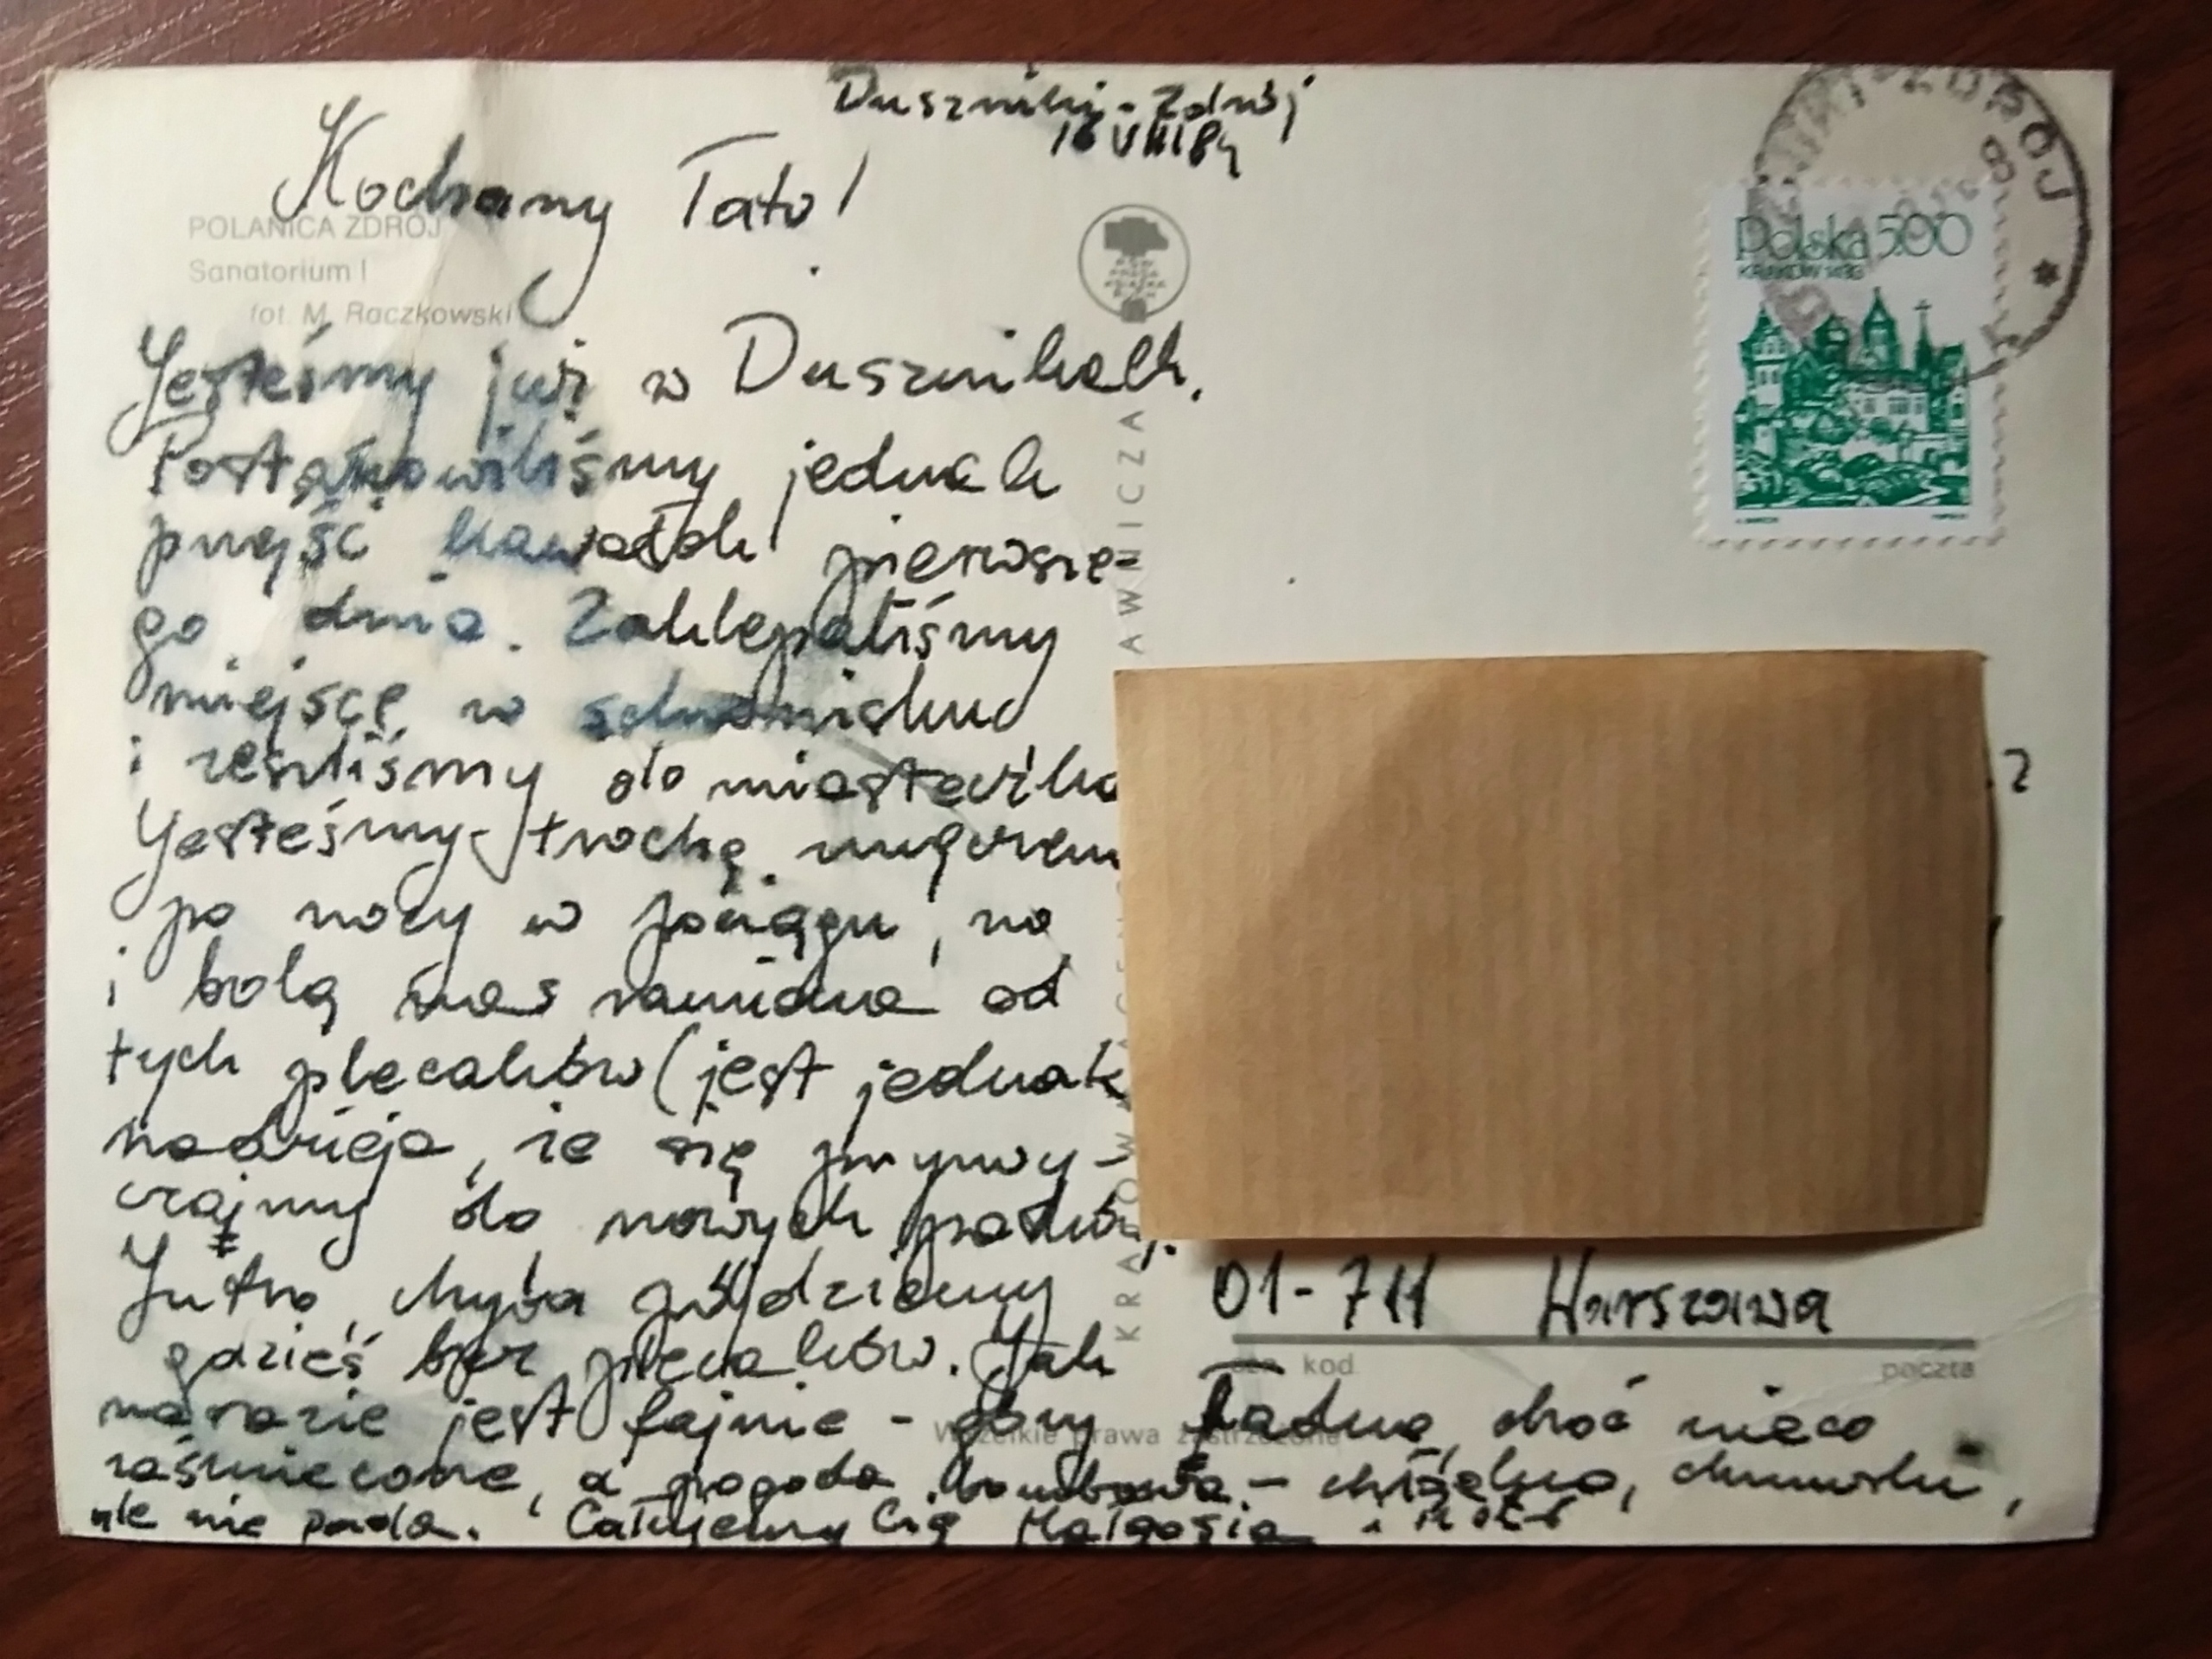 Duszniki-Zdrój
16 VIII 84
Kochany Tato!
POLANICA ZDRÓJ
Sanatorium I
fot. M. Raczkowski
Jesteśmy już w Dusznikach.
Postanowiliśmy jednak
przejść kawałek pierwsze-
go dnia. Zaklepaliśmy
miejsce w schronisku
i zeszliśmy do miasteczka
Jesteśmy trochę zmęczeni
po nocy w pociągu, no
i bolą nas ramiona od
tych plecaków (jest jednak
nadzieja, że się przyzwy-
czaimy do nowych
Jutro chyba pójdziemy
gdzieś bez plecaków. Jak
na razie jest fajnie - góry ładne, choć nieco
zaśmiecone, a pogoda bombowa - chmurki,
ale nie pada. Całujemy Cię Małgosia i
ZDRÓJ
Polska 500
KRAKÓW 1493
AWNICZA
KRA
01-711 Warszawa
kod poczta
Wszelkie prawa zastrzeżone